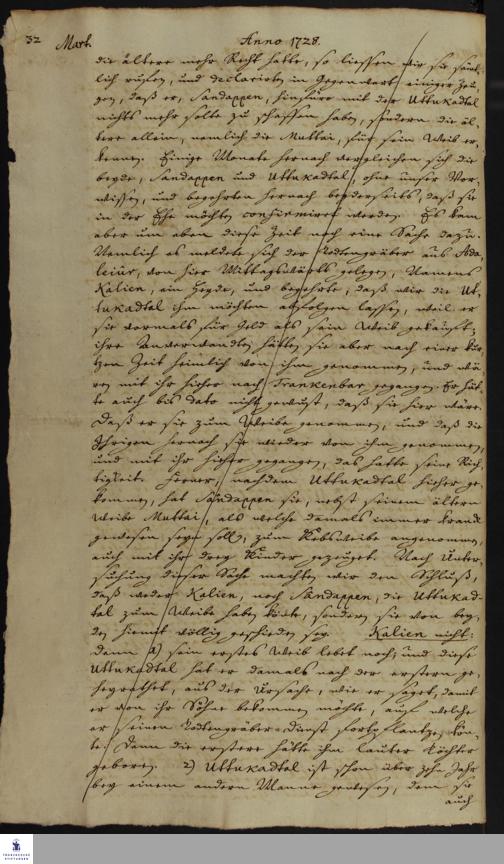 32 Mart. Anno 1728.
die ältere mehr Recht hätte, so liessen wir sie sämt-
lich ruffen, und declarirten in Gegenwart einiger Zeu-
gen, daß er, Sandappen, hinführo mit der Uttukadtal
nichts mehr solte zu schaffen haben, sondern die äl-
tere allein, nemlich die Muttai, für sein Weib er-
kennen. Einige Monate hernach verglichen sich die
beyde, Sandappen und Uttukadtal, ohne unser Vor-
wissen, und begehrten hernach beyderseits, daß sie
in der Ehe möchten confirmiret werden. Es kam
aber um eben diese Zeit noch eine Sache dazu.
Nemlich es meldete sich der Todtengräber aus
von hier Mittagswärts gelegen, Namens
Kalien, ein Heyde, und begehrte, daß wir die Ut-
tukadtal ihm möchten abfolgen lassen, weil er
sie vormals für Geld als sein Weib gekauft;
ihre Anverwandten hätten sie aber nach einer kur-
tzen Zeit heimlich von ihm genommen, und wä-
ren mit ihr hieher nach Trankenbar gegangen. Er hät-
te auch bis dato nicht gewust, daß sie hier wäre.
Daß er sie zum Weibe genommen, und daß die
Ihrigen hernach sie wieder von ihm genommen,
und mit ihr hieher gegangen, das hatte seine Rich-
tigkeit. Ferner, nachdem Uttukadtal hieher ge-
kommen, hat Sandappen sie, nebst seinem ältern
Weibe Muttai, als welche damals immer kranck
gewesen seyn soll, zum Kebsweibe angenommen,
auch mit ihr drey Kinder gezeuget. Nach Unter-
suchung dieser Sache machten wir den Schluß,
daß weder Kalien, noch Sandappen, die Uttukad-
tal zum Weibe haben könte, sondern sie von bey-
den hiemit völlig geschieden sey. Kalien nicht:
denn 1) sein erstes Weib lebet noch; und diese
Uttukadtal hat er damals nach der erstern ge-
heyrathet, aus der Ursache, wie er saget, damit
er von ihr Söhne bekommen möchte, auf welche
er seinen Todtengräber-Dienst fortpflantzen kön-
te. Denn die erstere hätte ihm lauter Töchter
geboren. 2) Uttukadtal ist schon über zehn Jahr
bey einem andern Manne gewesen, dem sie
auch